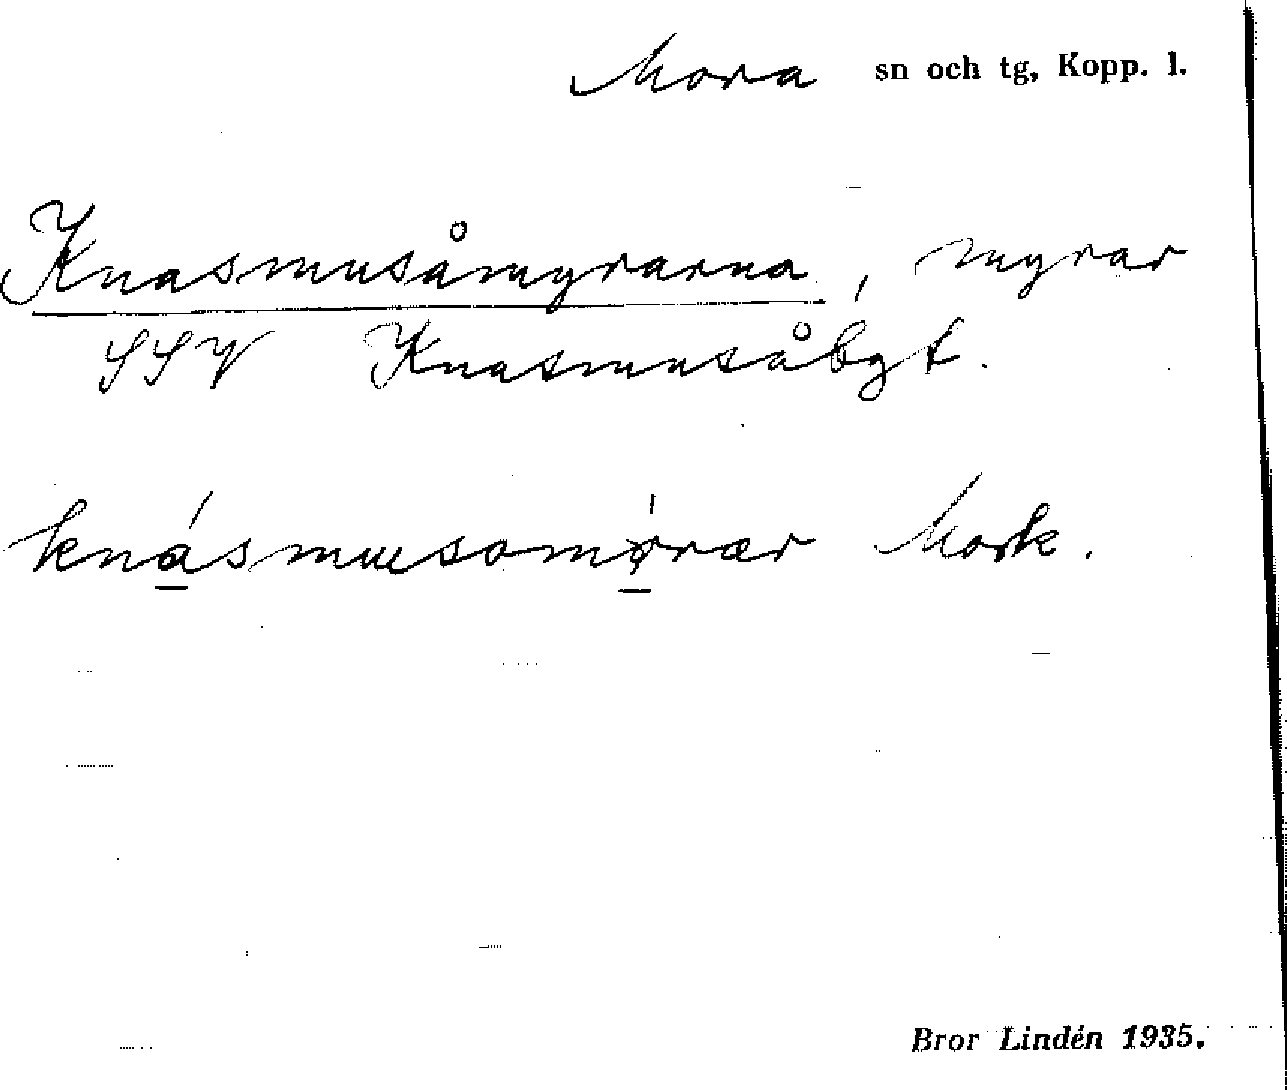 Mora sn och tg, Kopp. l.
Knasmusåmyrarna, myrar
SSV Knasmusåbgt.
knásmusomørær Mork.
Bror Lindén 1935.